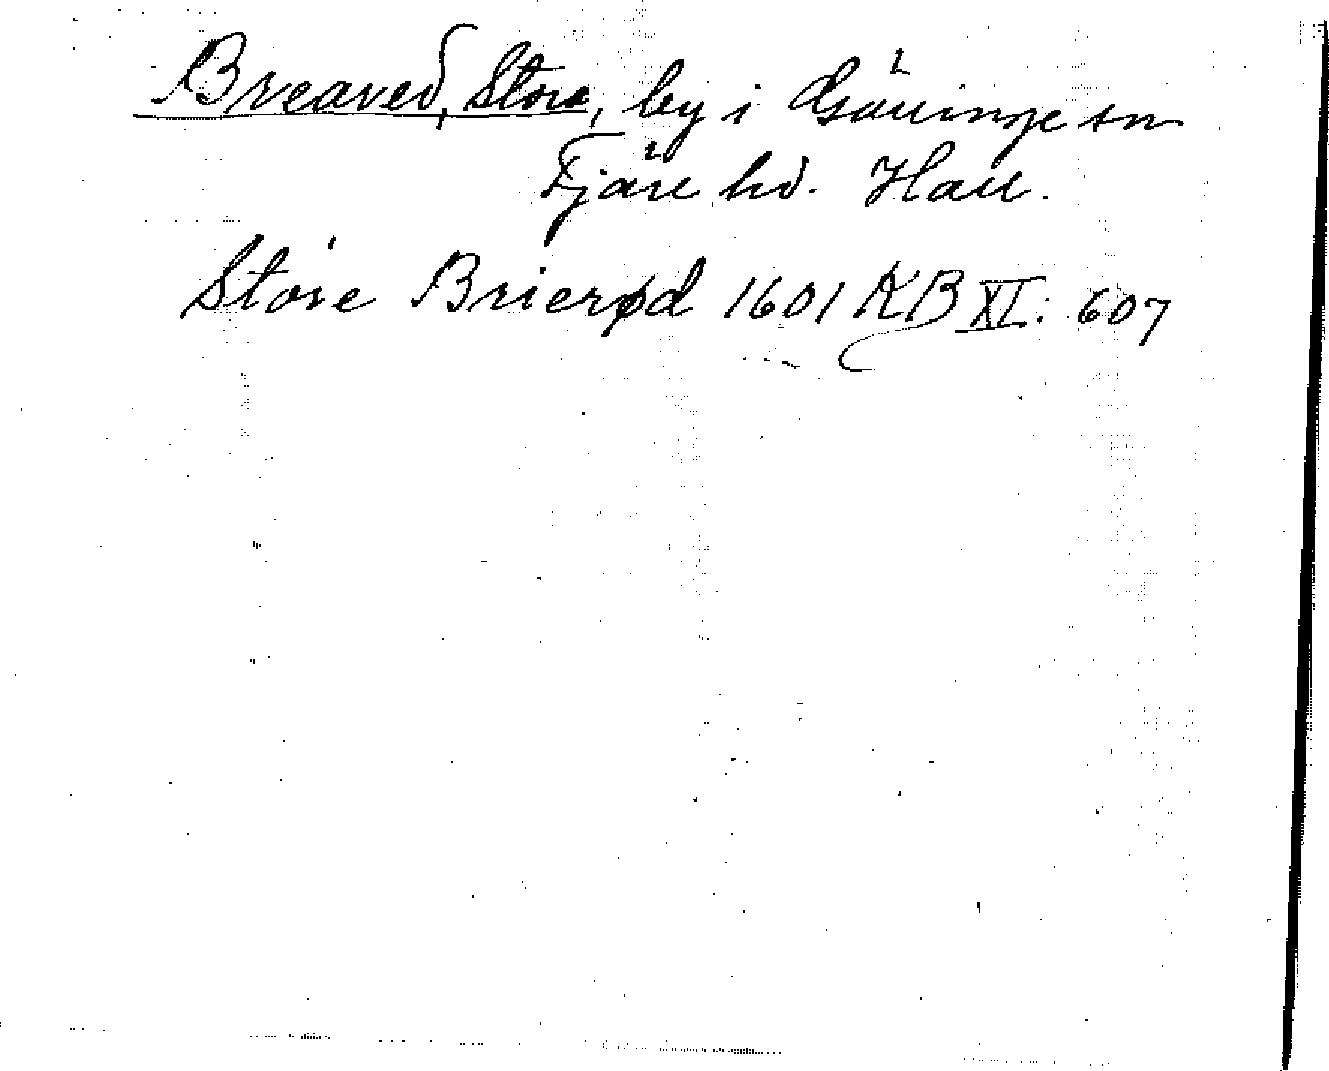 Breared, Stora, by i Gällinge sn
Fjäre hd. Hall.
Store Brierød 1601 KB XI: 607